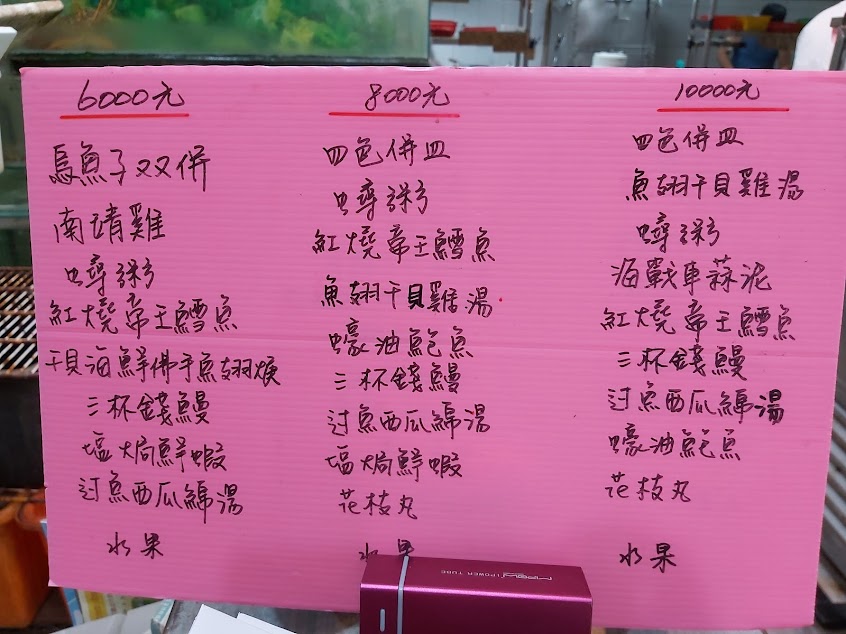 6000元
烏魚子双併
南靖雞
蟳粥
紅燒帝王鱈魚
干貝海鮮佛手魚翅煲
三杯錢鰻
塩焗鮮蝦
过魚西瓜綿湯
水果
8000元
四色併皿
蟳粥
紅燒帝王鱈魚
魚翅干貝雞湯
蠔油鮑魚
三杯錢鰻
过魚西瓜綿湯
塩焗鮮蝦
花枝丸
水果
10000元
四色併皿
魚翅干貝雞湯
蟳粥
海戰車蒜泥
紅燒帝王鱈魚
三杯錢鰻
过魚西瓜綿湯
蠔油鮑魚
花枝丸
水果
POWER TUBE